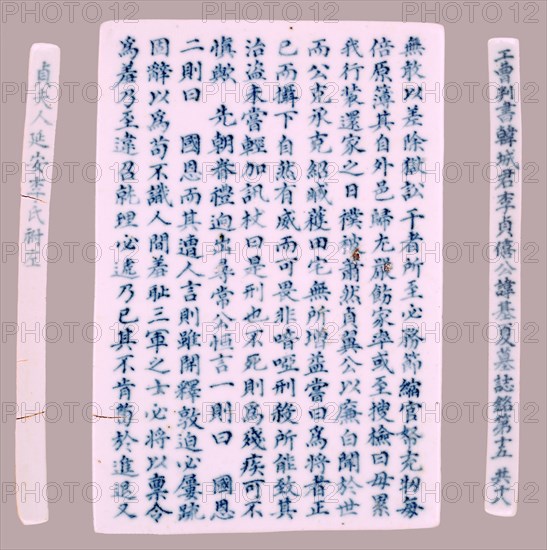 工曹判書韓城君李貞僖公諱基夏墓誌銘第十五 共六
無敢以差除獄訟干者所至必務節縮官帑充牣每
倍原簿其自外邑歸尤嚴飭家率或至搜檢曰毋累
我行裝還家之日襆被蕭然貞翼公以廉白聞於世
而公克承克紹臧獲田宅無所增益嘗曰爲將者正
己而懾下自然有威而可畏非喑啞刑殺所能致其
治盜未嘗輕加訊杖曰是刑也不死則爲殘疾可不
愼歟 先朝眷禮逈出尋常公恒言一則曰 國恩
二則曰 國恩而其遭人言則雖開釋敦迫必屢疏
固辭以爲苟不識人間羞恥三軍之士必將以稟令
爲辱乃至違召就理必遞乃已其不肯苟於進退又
貞夫人延安李氏祔左